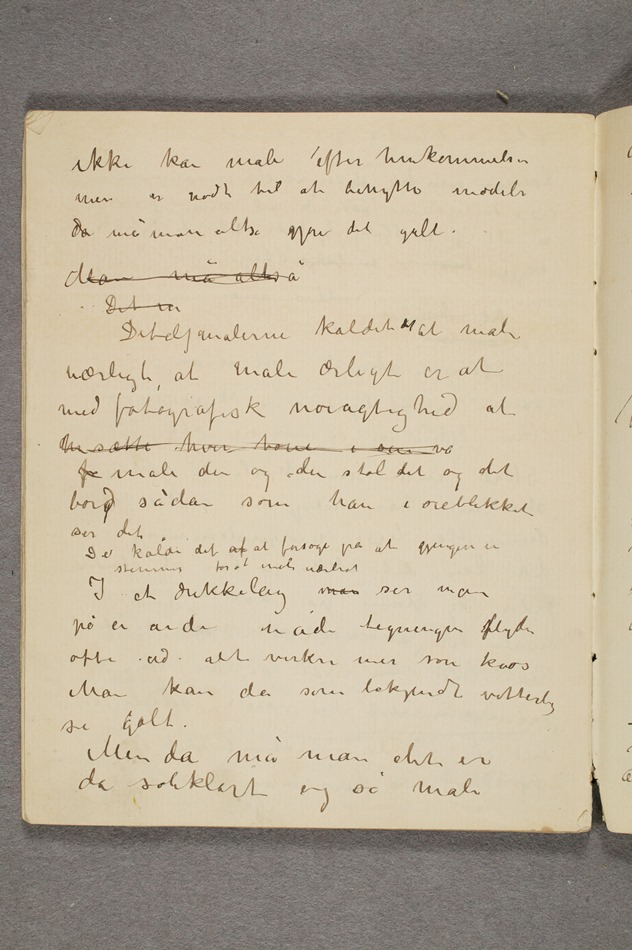 ikke kan male efter hukommelsen
men er nødt til at benytte modeler
da må man altså gjøre det galt.
Man må altså
Det er
Detaljmalerne kalder at male
uærligt, at male ærligt er at
med fotografisk nøiagtighed at
hver tone i sin va
male den og den stol det og det
bord sådan som han i øieblikket
ser det
De kalder det at forsøge på at gjengi en
stemning for at male uærligt
I et drikkelag man ser man
på en anden måde tegningen flyder
ofte ud alt virker mer som kaos
Man kan da som bekjendt
se galt.
Men da må man det er
da soleklart og så male